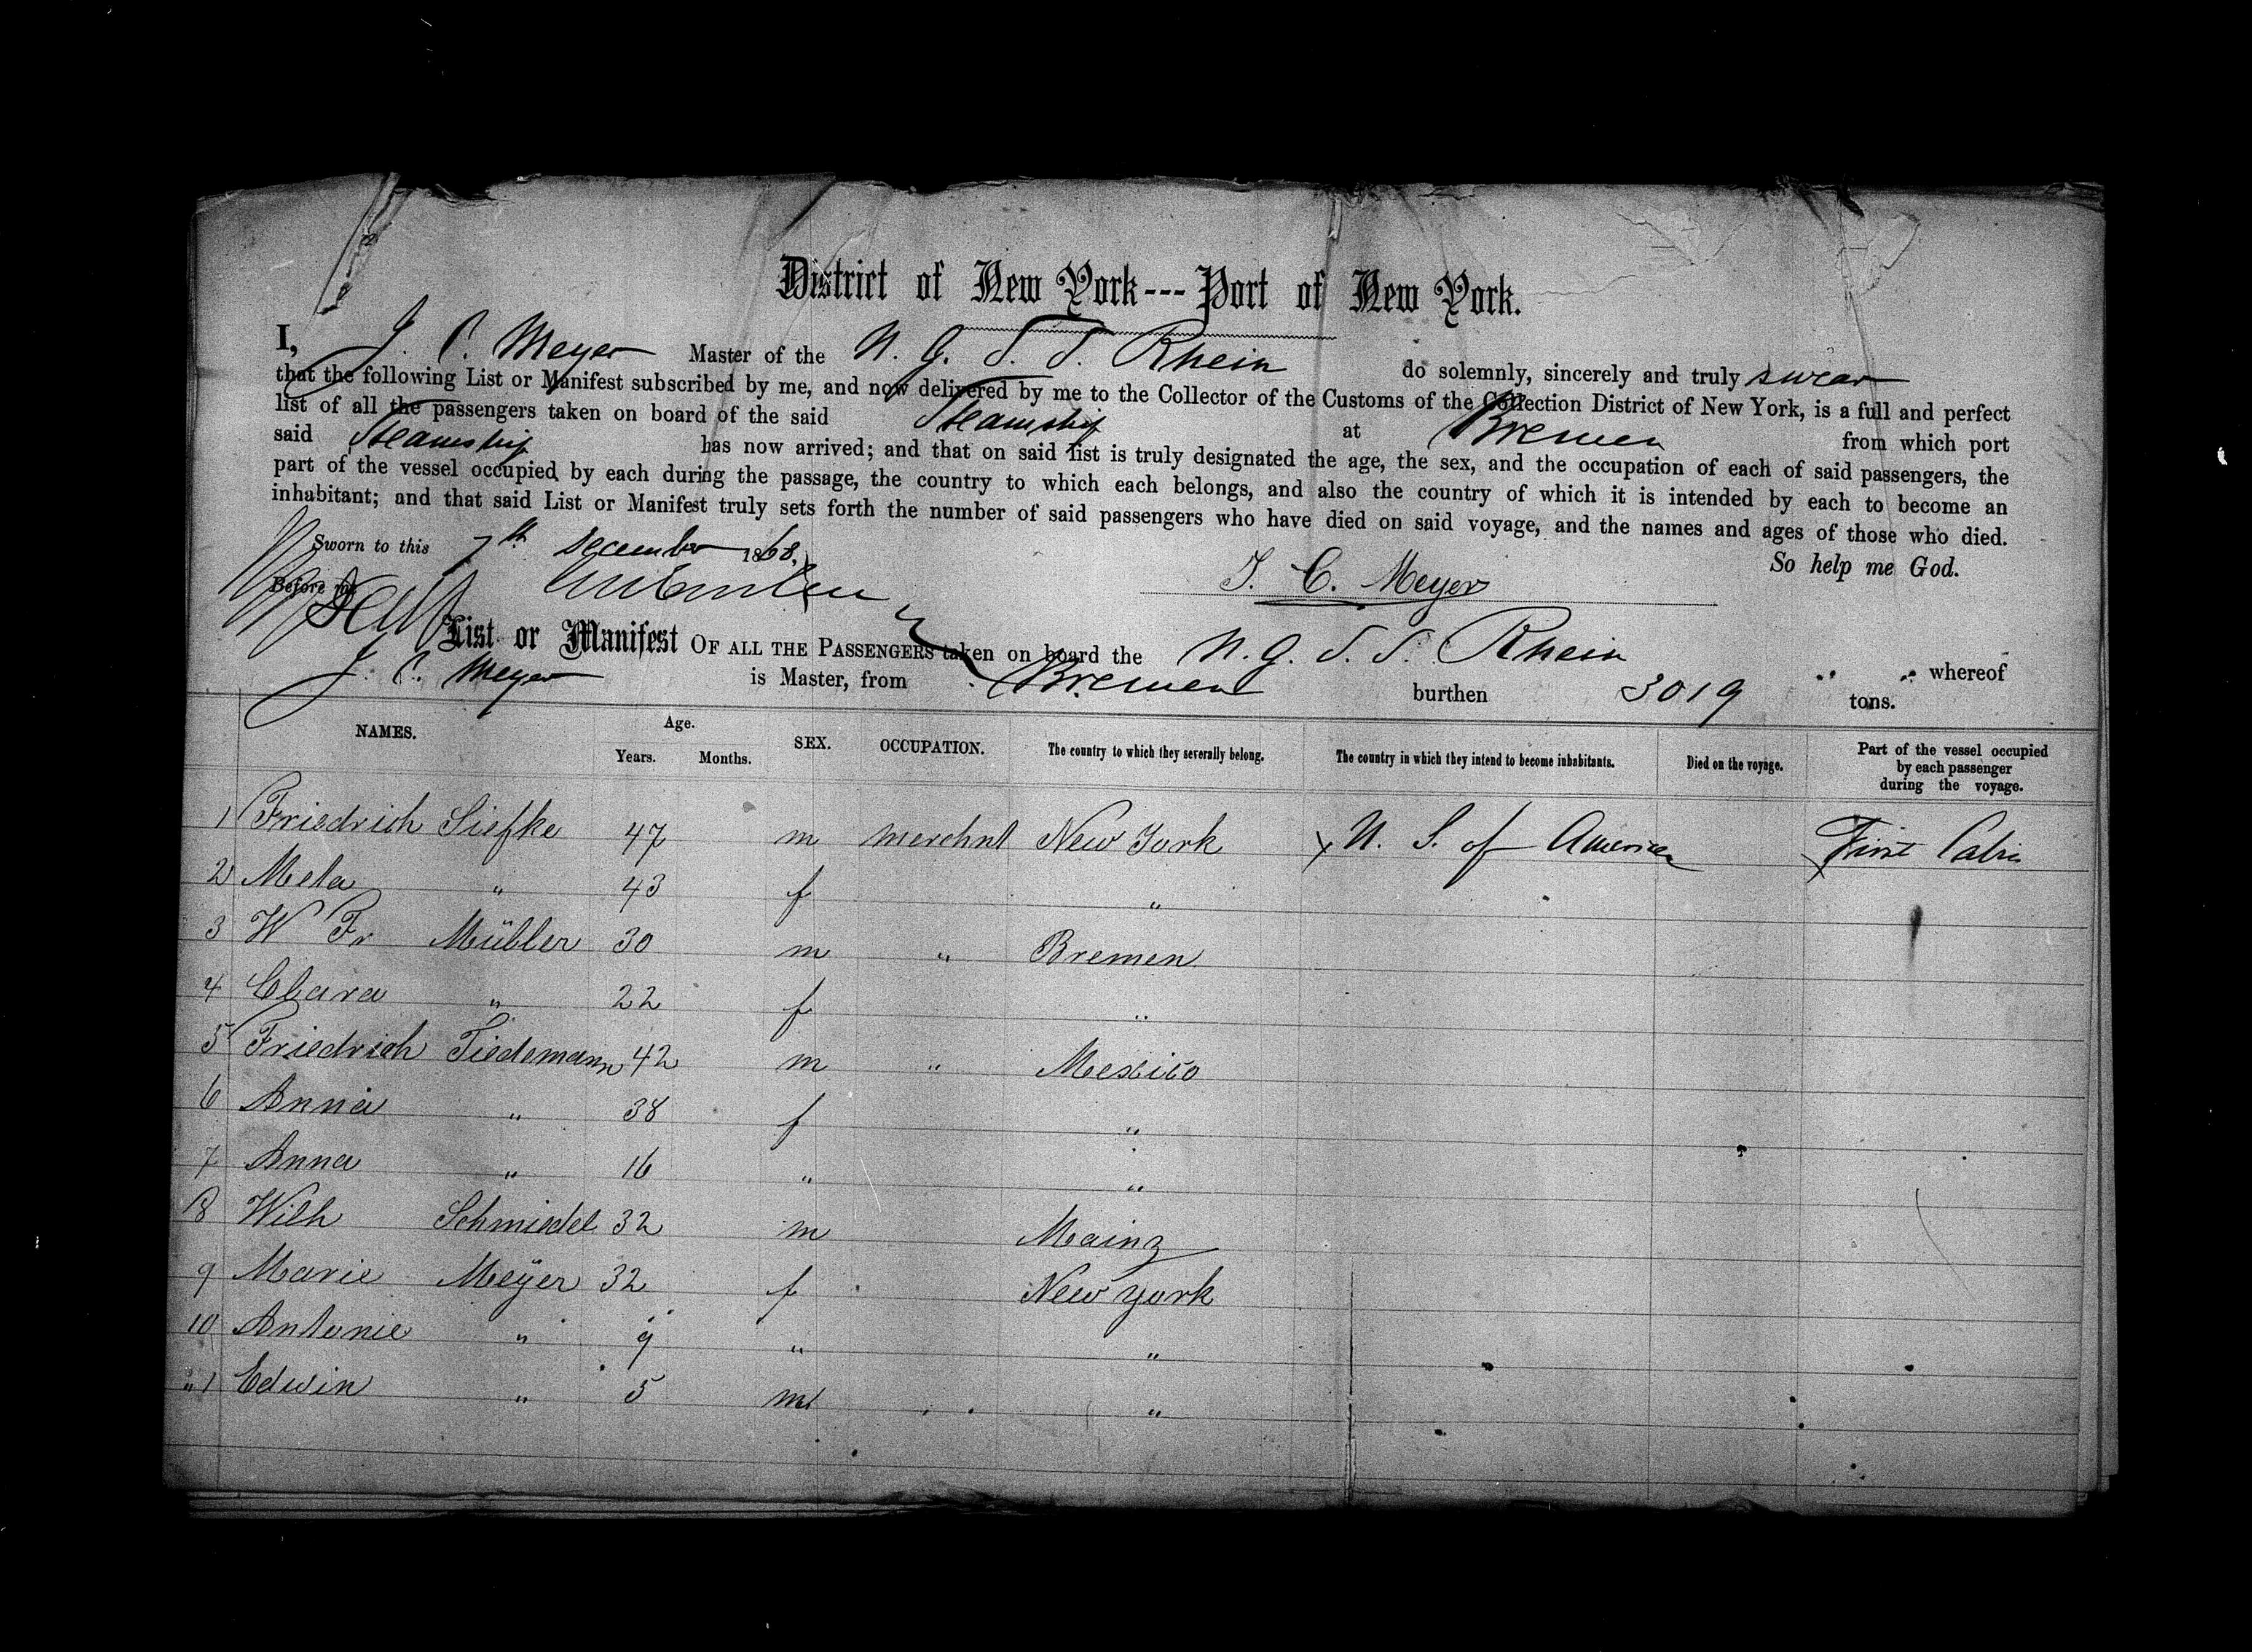 District of New York --- Port of New York.
I, J. C. Meyer Master of the N. G. S. S. Rhein do solemnly, sincerely and truly swear
that the following List or Manifest subscribed by me, and now delivered by me to the Collector of the Customs of the Collection District of New York, is a full and perfect
list of all the passengers taken on board of the said Steamship at Bremen from which port
said Steamship has now arrived; and that on said list is truly designated the age, the sex, and the occupation of each of said passengers, the
part of the vessel occupied by each during the passage, the country to which each belongs, and also the country of which it is intended by each to become an
inhabitant; and that said List or Manifest truly sets forth the number of said passengers who have died on said voyage, and the names and ages of those who died.
Sworn to this 7th December 1868. So help me God.
Before me J. C. Meyer
List or Manifest OF ALL THE PASSENGERS taken on board the N. G. S. S. Rhein " " whereof
J. C. Meyer is Master, from Bremen burthen 3019 tons.
NAMES. Age. Years. Months. SEX. OCCUPATION. The country to which they severally belong. The country in which they intend to become inhabitants. Died on the voyage. Part of the vessel occupied by each passenger during the voyage.
1 Friedrich Siefke 47 m merchnt New York U. S. of America First Cabin
2 Meta " 43 f "
3 W Fr Müller 30 m " Bremen
4 Clara " 22 f "
5 Friedrich Tiedemann 42 m " Mexico
6 Anna " 38 f "
7 Anna " 16 " "
8 Wilh Schmiedel 32 m Mainz
9 Marie Meÿer 32 f New York
10 Antonie " 9 " "
"1 Edwin " 5 m "